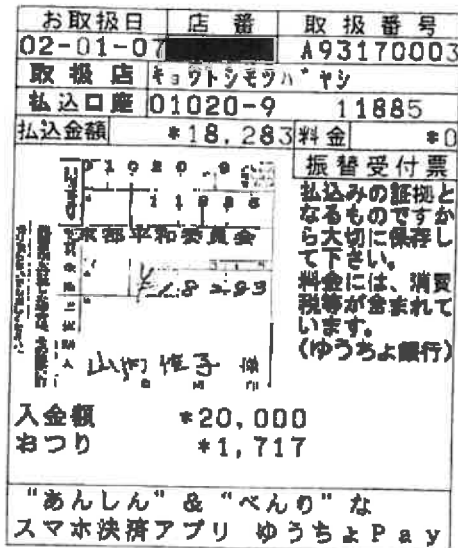 お取扱日 店番 取扱番号
02-01-07 A93170003
取扱店 キョウトシモツハ゛ヤシ
払込口座 01020-9 11885
払込金額 *18,283 料金 *0
振替受付票
払込みの証拠と
なるものですか
ら大切に保存し
て下さい。
料金には、消費
税等が含まれて
います。
(ゆうちょ銀行)
01020 9
11885
京都平和委員会
18283
様
入金額 *20,000
おつり *1,717
"あんしん"&"べんり"な
スマホ決済アプリ ゆうちょPay